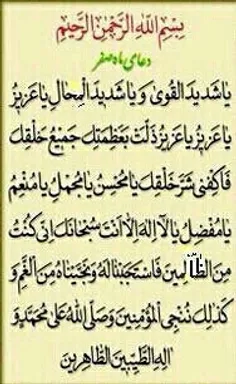 بِسْمِ اللهِ الرَّحْمٰنِ الرَّحيْمِ
دعای ماه صفر
يا شَديدَ الْقُویٰ وَ يا شَديدَ الْمِحالِ يا عَزيزُ
يا عَزيزُ يا عَزيزُ ذَلَّتْ بِعَظَمَتِكَ جَميعُ خَلْقِكَ
فَاكْفِنی شَرَّ خَلْقِكَ يا مُحْسِنُ يا مُجْمِلُ يا مُنْعِمُ
يا مُفْضِلُ يا لا اِلٰهَ اِلّا اَنْتَ سُبْحانَكَ اِنّی كُنْتُ
مِنَ الظّالِمينَ فَاسْتَجَبْنا لَهُ وَ نَجَّيْناهُ مِنَ الْغَمِّ وَ
كَذٰلِكَ نُنْجِی الْمُؤْمِنينَ وَ صَلَّی اللهُ عَلیٰ مُحَمَّدٍ وَ
الِهِ الطَّيِّبينَ الطّاهِرينَ